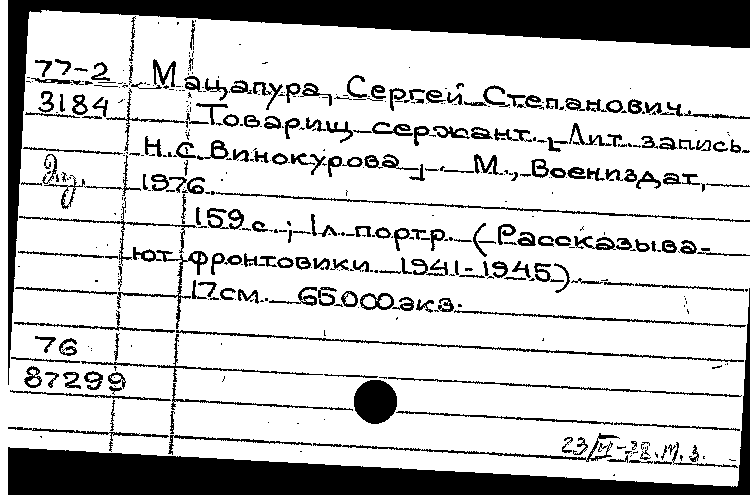 77-2 Мацапура, Сергей Степанович.
3184 Товарищ сержант. [Лит. запись
Н.С. Винокурова]. М., Воениздат,
1976.
159 с.; 1 л. портр. (Рассказыва-
ют фронтовики 1941-1945).
17 см. 65000 экз.
76
87299